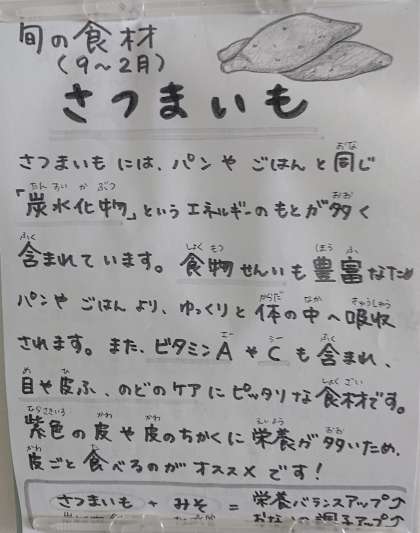 旬の食材
(9〜2月)
さつまいも
さつまいもには、パンやごはんと同じ
「炭水化物」というエネルギーのもとが多く
含まれています。食物せんいも豊富なため
パンやごはんより、ゆっくりと体の中へ吸収
されます。また、ビタミンAやCも含まれ、
目や皮ふ、のどのケアにピッタリな食材です。
紫色の皮や皮のちかくに栄養が多いため、
皮ごと食べるのがオススメです!
さつまいも + みそ = 栄養バランスアップ↑
おなかの調子アップ↑